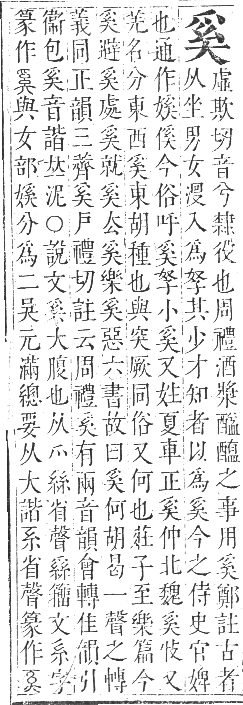 奚虛欺切音兮隸役也周禮酒漿醯醢之事用奚鄭註古者
从坐男女沒入為孥其少才知者以為奚今之侍史官婢
也通作㜎傒今俗呼奚孥小奚又姓夏車正奚仲北魏奚忮又
羌名分東西奚東胡種也與突厥同俗又何也莊子至樂篇今
奚避奚處奚就奚厺奚樂奚惡六書故曰奚何胡曷一聲之轉
義同正韻三薺奚戶禮切註云周禮奚有兩音韻會轉佳韻引
衞包奚音諧𠀤泥○說文奚大腹也从爪𦃟省聲𦃟籒文系字
篆作奚與女部㜎分為二吳元滿總要从大諧系省聲篆作